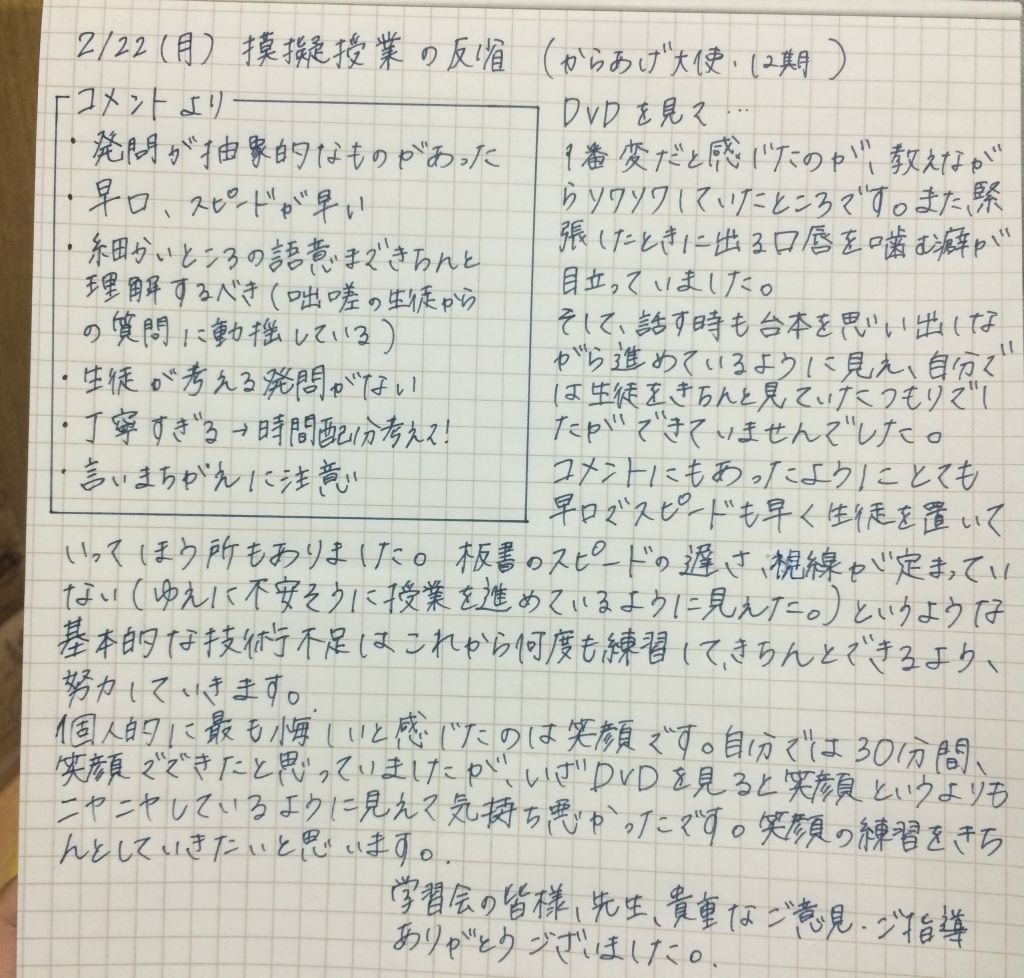 2/22(月) 模擬授業の反省 (からあげ大使・12期)
コメントより
・発問が抽象的なものがあった
・早口、スピードが早い
・細かいところの語意まできちんと
理解するべき(咄嗟の生徒から
の質問に動揺している)
・生徒が考える発問がない
・丁寧すぎる→時間配分考えて!
・言いまちがえに注意
DVDを見て…
1番変だと感じたのが、教えなが
らソワソワしていたところです。また、緊
張したときに出る口唇を噛む癖が
目立っていました。
そして、話す時も台本を思い出しな
がら進めているように見え、自分で
は生徒をきちんと見ていたつもりでし
たができていませんでした。
コメントにもあったようにとても
早口でスピードも早く生徒を置いて
いってしまう所もありました。板書のスピードの遅さ、視線が定まってい
ない(ゆえに不安そうに授業を進めているように見えた。)というような
基本的な技術不足はこれから何度も練習して、きちんとできるより、
努力していきます。
個人的に最も悔しいと感じたのは笑顔です。自分では30分間、
笑顔でできたと思っていましたが、いざDVDを見ると笑顔というよりも
ニヤニヤしているように見えて気持ち悪かったです。笑顔の練習をきち
んとしていきたいと思います。
学習会の皆様、先生、貴重なご意見・ご指導
ありがとうございました。